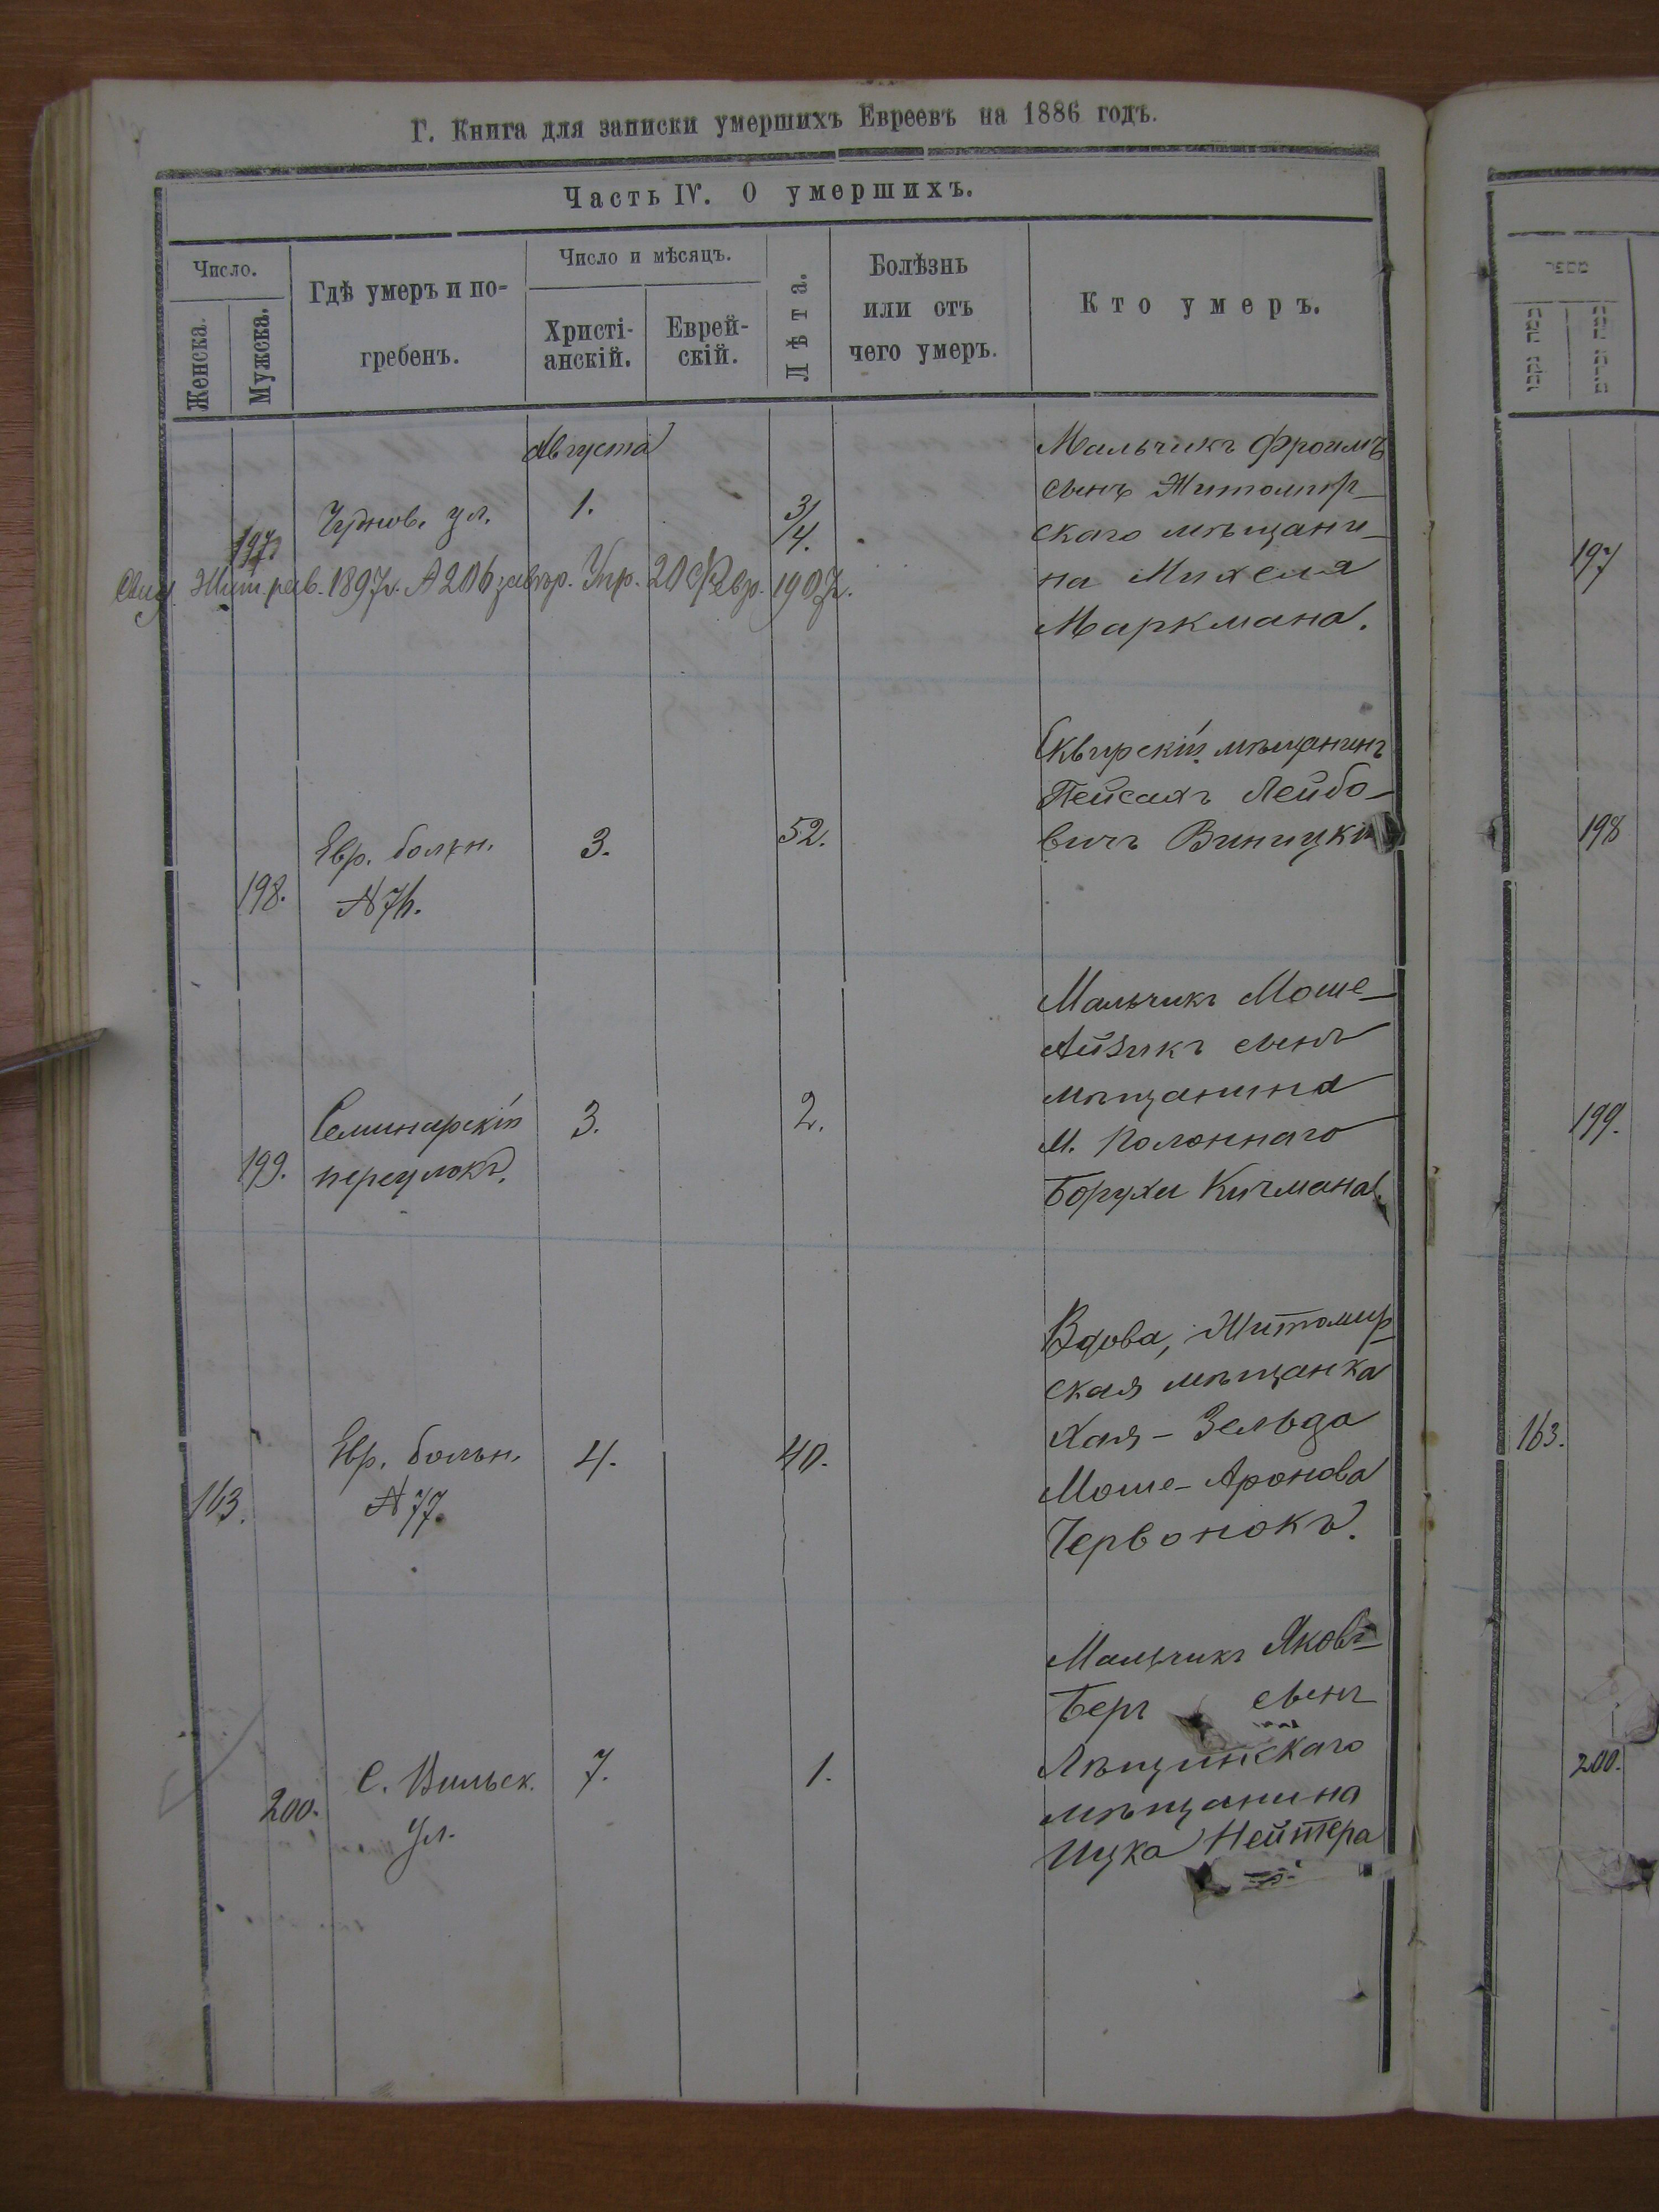 Г. Книга для записки умершихъ Евреевъ на 1886 годъ.
Часть IV. О умершихъ.
Число.
Женска.
Мужска.
Гдѣ умеръ и по-
гребенъ.
Число и мѣсяцъ.
Христі-
анскій.
Еврей-
скій.
Лѣта.
Болѣзнь
или отъ
чего умеръ.
Кто умеръ.
Августа
197.
Чуднов. ул.
1.
3/4.
Мальчикъ Фроимъ
сынъ Житомир-
скаго мѣщани-
на Михеля
Маркмана.
Жит. рав. 1897г. № 206 Упр. 20 Февр. 1907г.
198.
Евр. больн.
№ 76.
3.
52.
Сквирскій мѣщанинъ
Пейсахъ Лейбо-
вичъ Виницкій
199.
Семинарскій
переулокъ.
3.
2.
Мальчикъ Моше-
Айзикъ сынъ
мѣщанина
м. Полоннаго
Боруха Кичмана.
163.
Евр. больн.
№ 77.
4.
40.
Вдова, Житомир-
ская мѣщанка
Хая-Зельда
Моше-Аронова
Червонокъ.
200.
С. Вильск.
ул.
7.
1.
Мальчикъ Яковъ-
Беръ сынъ
Лѣщинскаго
мѣщанина
Ицка Нейтера
מספר
197
198
199.
163.
200.